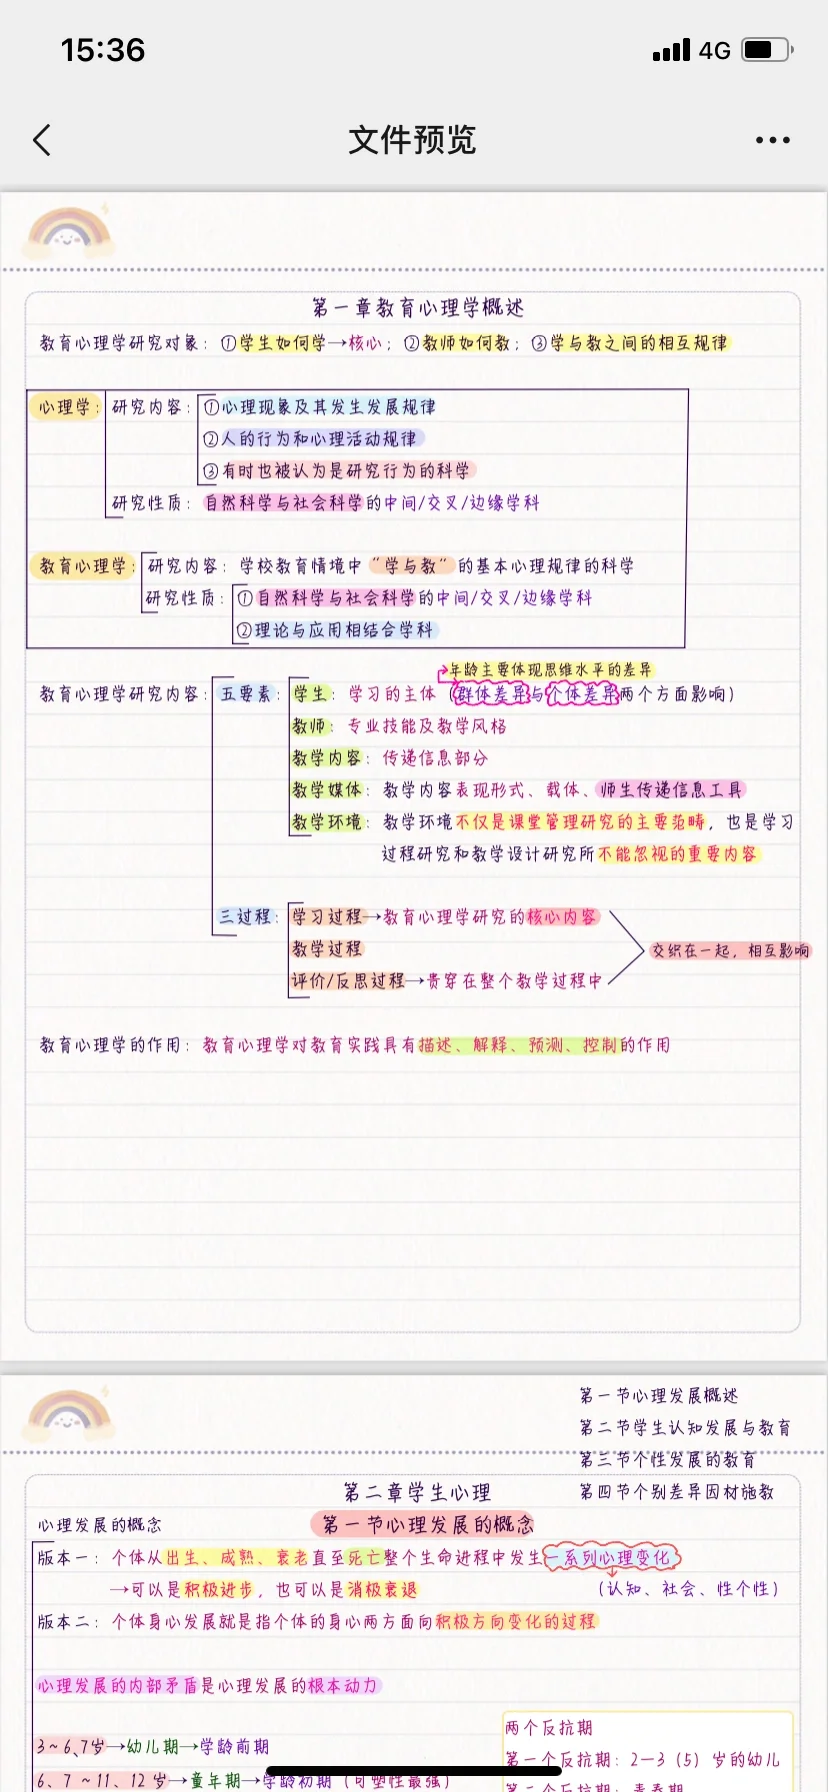 15:36
4G
文件预览
第一章教育心理学概述
教育心理学研究对象：①学生如何学→核心；②教师如何教；③学与教之间的相互规律
心理学：研究内容：①心理现象及其发生发展规律
②人的行为和心理活动规律
③有时也被认为是研究行为的科学
研究性质：自然科学与社会科学的中间/交叉/边缘学科
教育心理学：研究内容：学校教育情境中“学与教”的基本心理规律的科学
研究性质：①自然科学与社会科学的中间/交叉/边缘学科
②理论与应用相结合学科
→年龄主要体现思维水平的差异
教育心理学研究内容：五要素：学生：学习的主体（群体差异与个体差异两个方面影响）
教师：专业技能及教学风格
教学内容：传递信息部分
教学媒体：教学内容表现形式、载体、师生传递信息工具
教学环境：教学环境不仅是课堂管理研究的主要范畴，也是学习
过程研究和教学设计研究所不能忽视的重要内容
三过程：学习过程→教育心理学研究的核心内容
教学过程
交织在一起，相互影响
评价/反思过程→贵穿在整个教学过程中
教育心理学的作用：教育心理学对教育实践具有描述、解释、预测、控制的作用
第一节心理发展概述
第二节学生认知发展与教育
第三节个性发展的教育
第四节个别差异因材施教
第二章学生心理
心理发展的概念
第一节心理发展的概念
版本一：个体从出生、成熟、衰老直至死亡整个生命进程中发生一系列心理变化
→可以是积极进步，也可以是消极衰退
（认知、社会、性个性）
版本二：个体身心发展就是指个体的身心两方面向积极方向变化的过程
心理发展的内部矛盾是心理发展的根本动力
两个反抗期
3~6、7岁→幼儿期→学龄前期
第一个反抗期：2—3（5）岁的幼儿
6、7~11、12岁→童年期→学龄初期（可塑性最强）
第二个反抗期：青春期